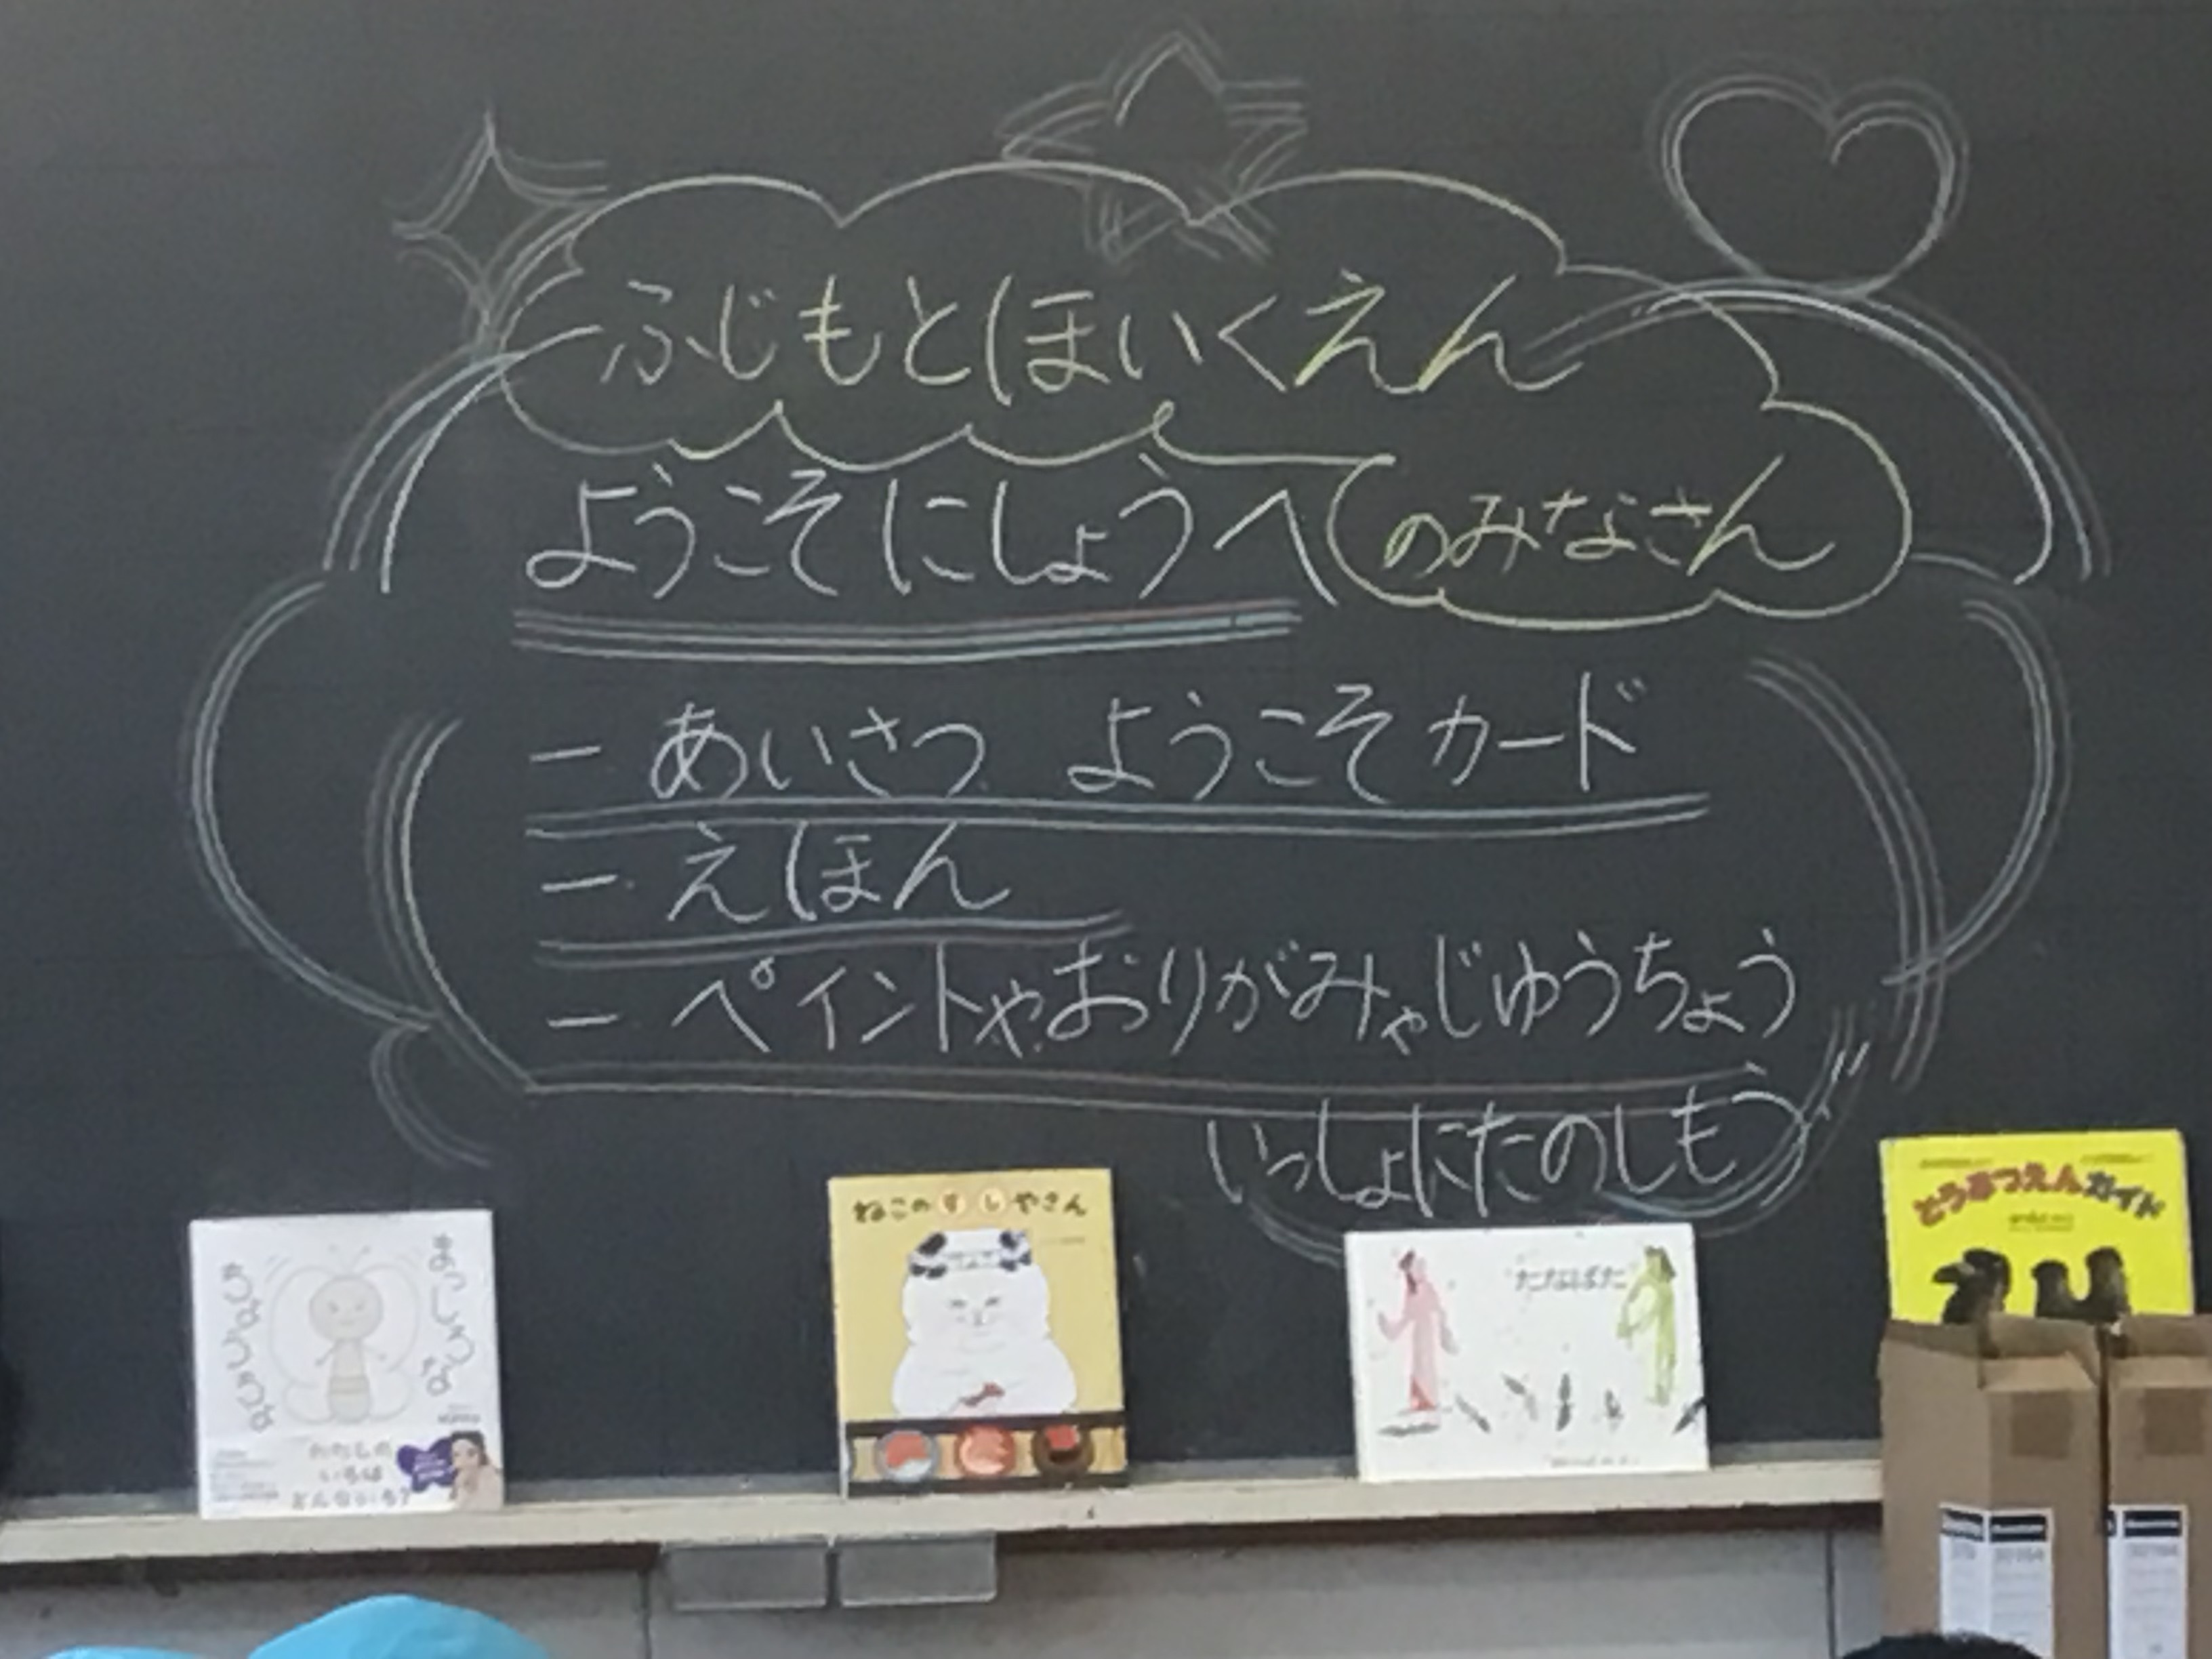 ふじもとほいくえん
のみなさん
ようこそにしょうへ
ー あいさつ ようこそカード
ー えほん
ー ペイントやおりがみやじゆうちょう
いっしょにたのしもう
まっしろな
ちょうちょな
わたしの
いろは
どんないろ?
ねこのすしやさん
たなばた
どうぶつえんガイド